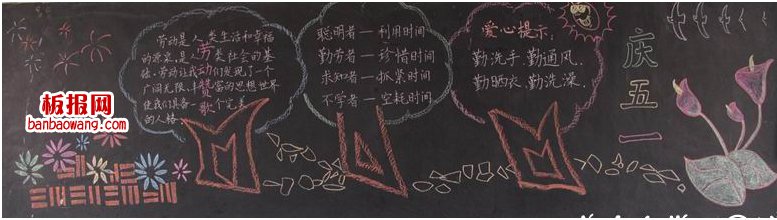 劳动是人类生活和幸福
的源泉,是人类社会的基
础,劳动让我们发现了一个
广阔无限,丰富的思想世界
使我们具备一个完美
的人格
劳
动
赞
歌
聪明者—利用时间
勤劳者—珍惜时间
求知者—抓紧时间
不学者—空耗时间
爱心提示:
勤洗手,勤通风,
勤晒衣,勤洗澡.
庆
五
一
板报网
banbaowang.com